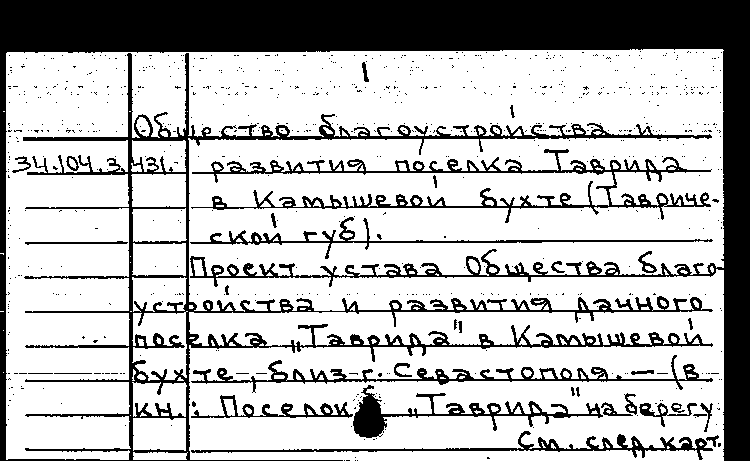 1
Общество благоустройства и
34.104.3.431. развития поселка Таврида
в Камышевой бухте (Тавриче-
ской губ).
Проект устава Общества благо-
устройства и развития дачного
поселка „Таврида" в Камышевой
бухте, близ г. Севастополя. — (в
кн.: Поселок „Таврида" на берегу
См. след. карт.